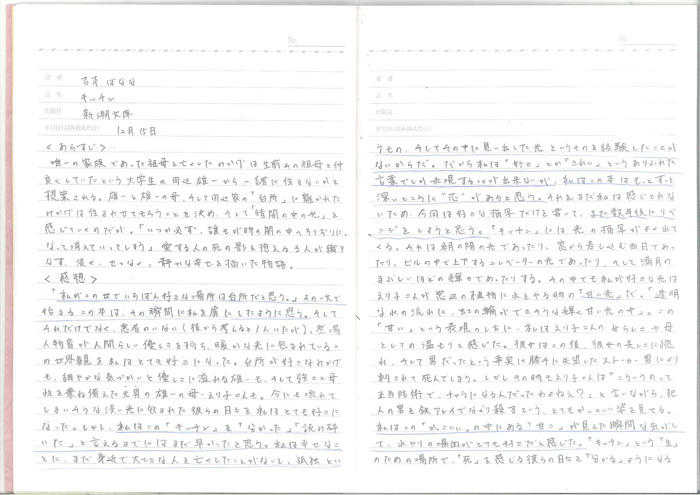 No.
著者 吉本ばなな
書名 キッチン
出版社 新潮文庫
年月日(読み終えた日) 12月15日
<あらすじ>
唯一の家族であった祖母を亡くしたみかげは生前その祖母と仲
良くしていたという大学生の田辺雄一から一緒に住まないかと
提案される。雄一と雄一の母、そして田辺家の「台所」に魅かれた
みかげは住まわせてもらうことを決め、そして「暗闇の中の光」を
感じていくのだが。「いつか必ず、誰もが時の闇の中へちりぢりに
なって消えていってしまう」愛する人の死の影を抱える3人が織り
なす、淡く、せつなく、静かな幸せを描いた物語。
<感想>
「私がこの世でいちばん好きな場所は台所だと思う。」その一文で
始まるこの本は、その瞬間に私を虜にしたように思う。そして
それだけでなく、悪者のいない(後から考えると1人いたが)、登場
人物皆が人間らしい優しさを持ち、暖かな光に包まれているこ
の世界観を私はとても好きになった。台所が好きなみかげ
も、細やかな気づかいと優しさに溢れる雄一も、そして強さと母
性を兼ね備えた元男の雄一の母・えり子さんも。今にも溶けて
しまいそうな淡い光に包まれた彼らの日々を私はとても好きに
なった。しかし、私はこの「キッチン」を「分かった」「読み解
いた」と言えるまでにはまだ早かったと思う。私は幸せなこ
とに、まだ身近で大切な人を亡くしたことがないし、孤独とい
No.
著者
書名
出版社
年月日(読み終えた日)
うもの、そしてその中に見い出した光というものを経験したことが
ないからだ。だから私は「好き」とか「きれい」というありふれた
言葉でしか表現することが出来ないが、私はこの本はもっとずっと
深いところに"芯"があると思う。それをまだ私は感じとれな
いため、今回は好きな描写だけを書いて、また数年後にリベ
ンジをしようと思う。「キッチン」には光の描写がよく出て
くる。それは朝の陽の光であったり、窓から差し込む西日であっ
たり、ビルの中を上下するエレベーターの光であり、そして満月の
まぶしいほどの輝きであったりする。その中でも私が好きな光は
えり子さんが窓辺の植物に水をやる時の「甘い光」だ。「透明
な水の流れに、虹の輪ができそうな輝く甘い光の中」。この
「甘い」という表現のしかたに、私はえり子さんの女らしさや母
としての温もりを感じた。彼女はこの後、彼女の美しさに惚
れ、そして男だったという事実に勝手に失望したストーカー男により
刺されて死んでしまう。しかしその時もえり子さんは"こういうのって
正当防衛で、チャラになるんだったわねえ?"と言いながら、犯
人の男を鉄アレイでなぐり殺すという、とてもかっこいい姿を見せる。
私はこの「かっこいい」の中にある「甘さ」が見えた瞬間な気がし
て、水やりの場面がとても好きだと感じた。「キッチン」という「生」
のための場所で、「死」を感じる彼らの日々を「分かる」ようになる